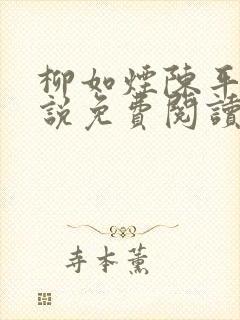 柳如煙陳平
說免費閱讀
寺本薰